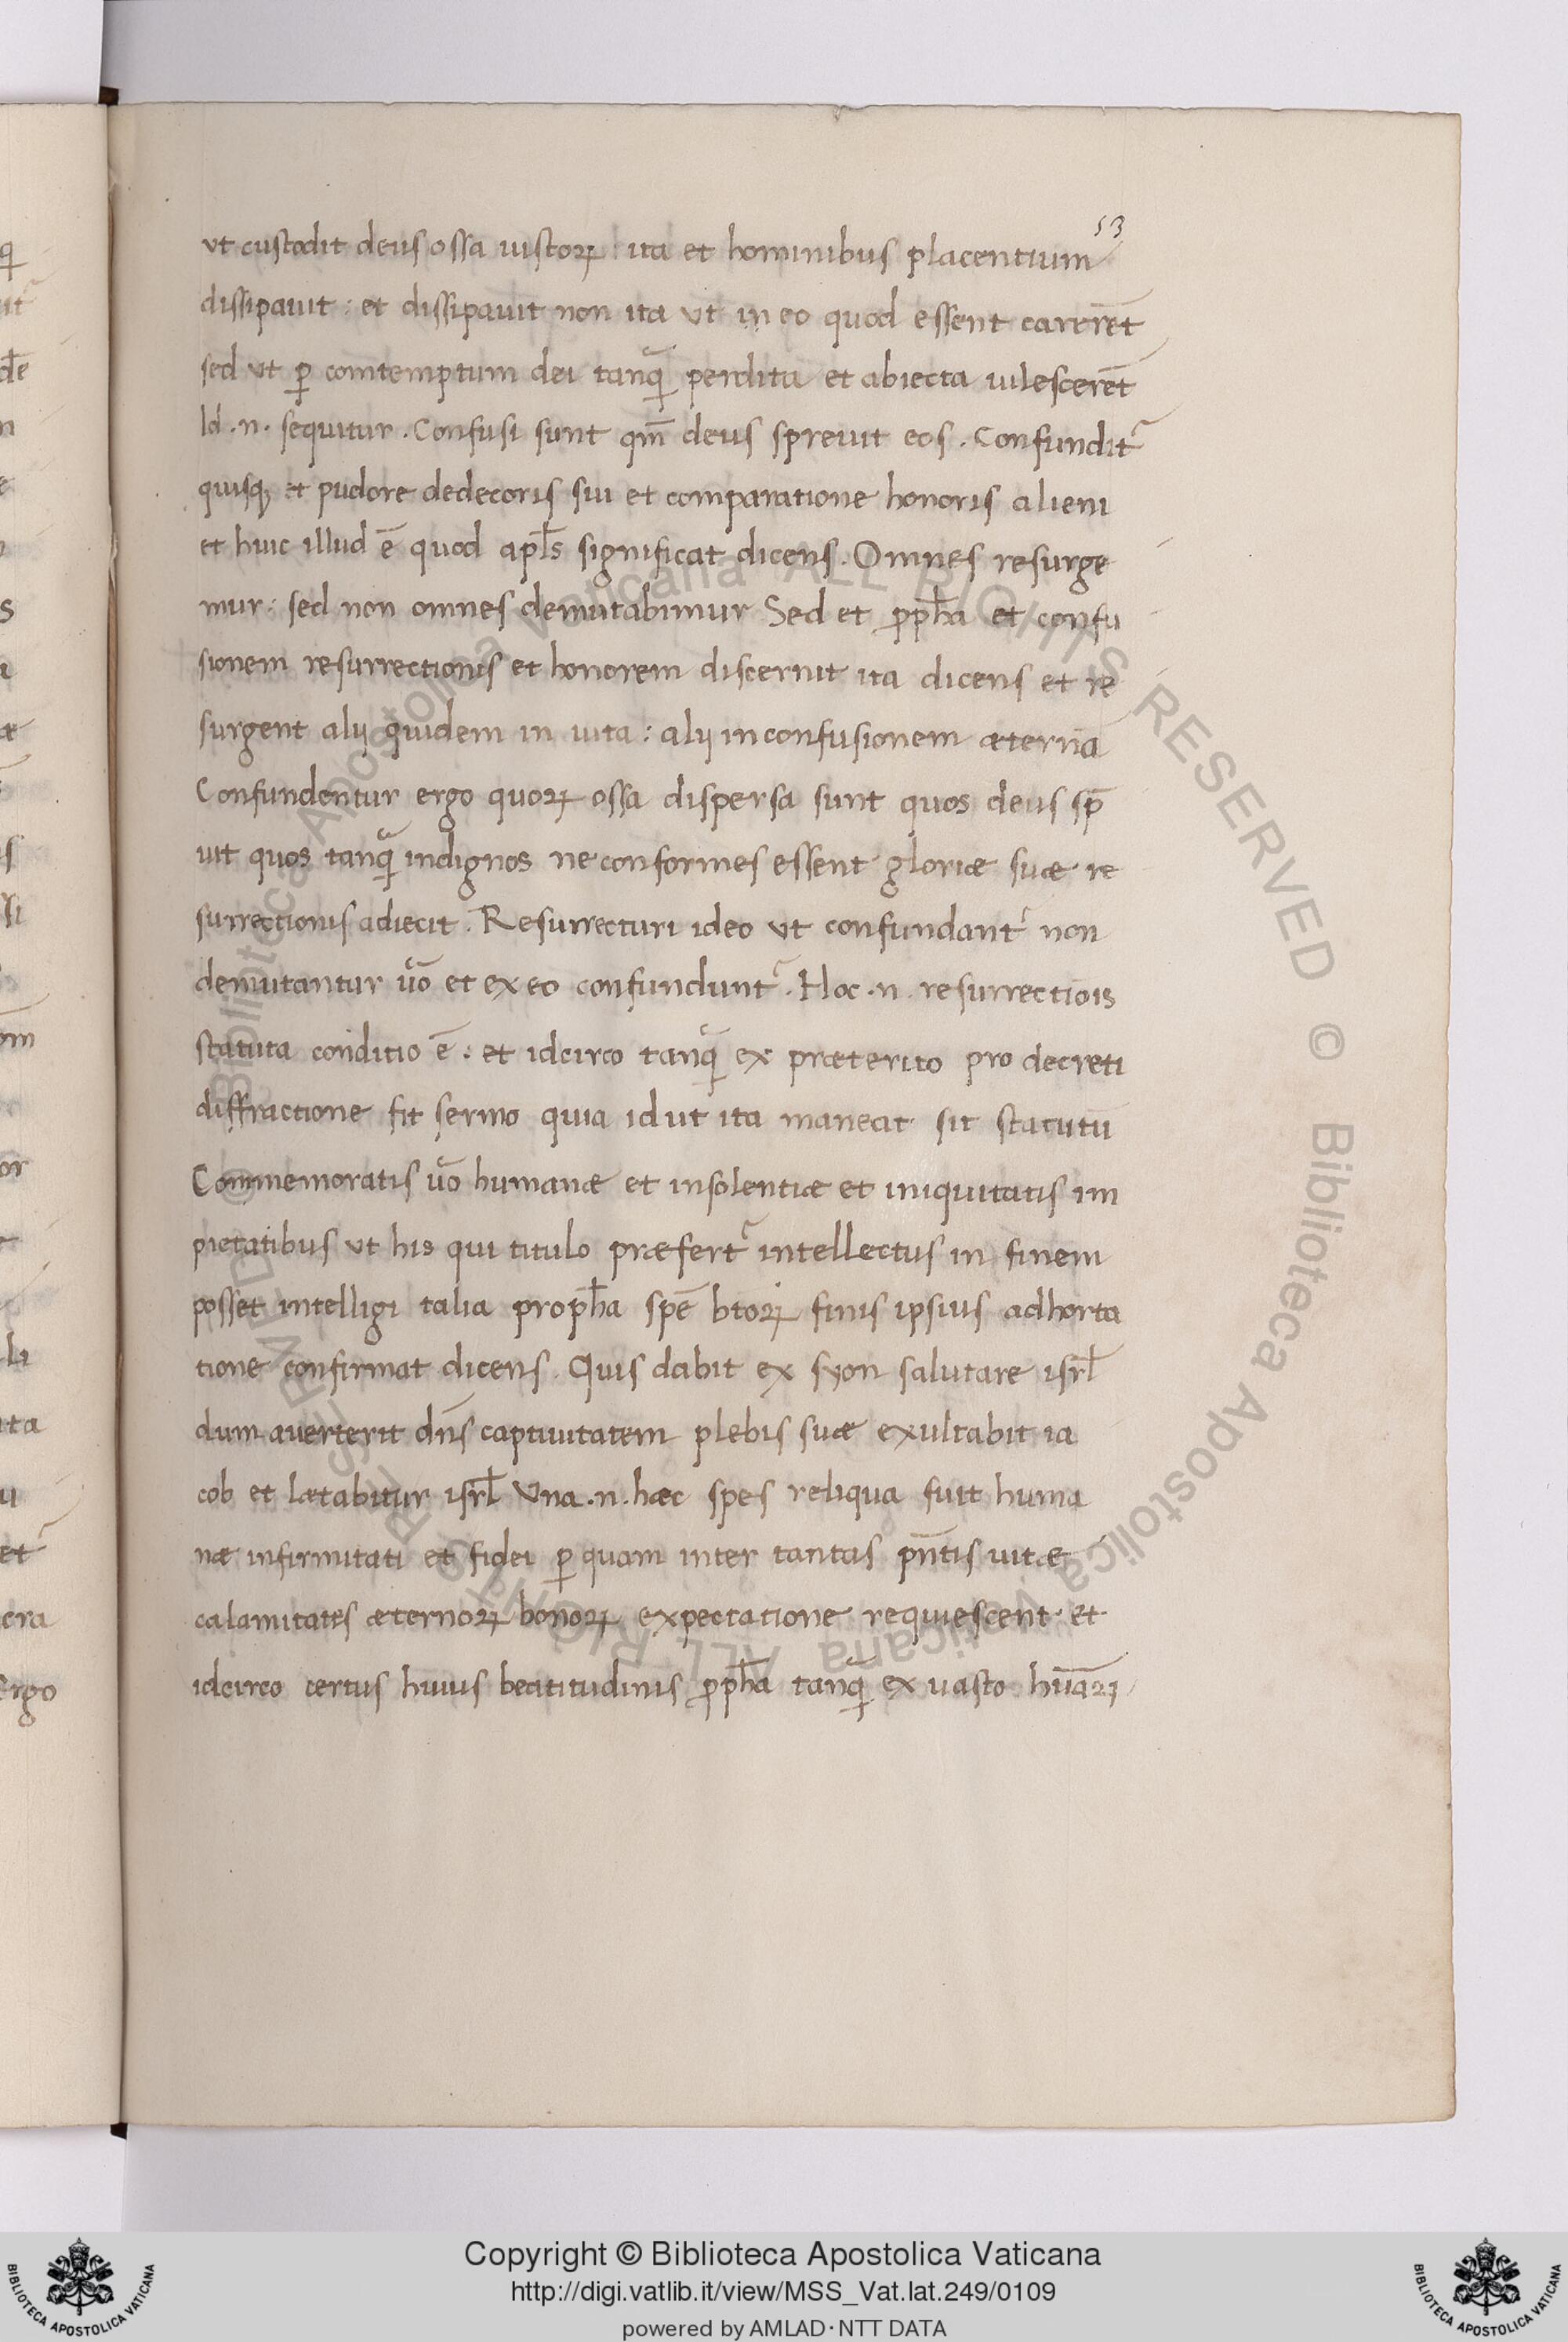 53
ut custodit deus ossa iustoꝝ: ita et hominibus placentium
dissipauit: et dissipauit non ita ut in eo quod essent carerēt
sed ut ꝑ comtemptum dei tanꝗͣ perdita et abiecta uilescerēt
Id .n. sequitur. Confusi sunt qm̄ deus spreuit eos. Confundit᷑
quisqꝫ et pudore dedecoris sui et comparatione honoris alieni
et huic illud ē quod apl̄s significat dicens. Omnes resurge
mur: sed non omnes demutabimur Sed et ꝓph̄a et confu
sionem resurrectionis et honorem discernit ita dicens et re
surgent alij quidem in uita: alij in confusionem æternā
Confundentur ergo quoꝝ ossa dispersa sunt quos deus sp̄
uit quos tanꝗͣ indignos ne conformes essent gloriæ suæ re
surrectionis adiecit. Resurrecturi ideo ut confundant᷑ non
demutantur ūo et ex eo confundunt᷑. Hoc .n. resurrectiōis
statuta conditio ē: et idcirco tanꝗͣ ex præterito pro decreti
diffractione fit sermo quia id ut ita maneat sit statutū
Commemoratis ūo humanæ et insolentiæ et iniquitatis im
pietatibus ut his qui titulo præfert᷑ intellectus in finem
posset intelligi talia proph̄a spē btōꝝ finis ipsius adhorta
tione confirmat dicens. Quis dabit ex syon salutare isrl̄
dum auerterit dn̄s captiuitatem plebis suæ exultabit ia
cob et lætabitur isrl̄ Una .n. hæc spes reliqua fuit huma
næ infirmitati et fidei ꝑ quam inter tantas pn̄tis uitæ
calamitates æternoꝝ bonoꝝ expectatione requiescent et
idcirco certus huius beatitudinis ꝓph̄a tanꝗͣ ex uasto hūāꝝ
© Biblioteca Apostolica Vaticana ALL RIGHTS RESERVED © Biblioteca Apostolica Vaticana ALL RIGHTS RESERVED
Copyright © Biblioteca Apostolica Vaticana
http://digi.vatlib.it/view/MSS_Vat.lat.249/0109
powered by AMLAD·NTT DATA
BIBLIOTECA APOSTOLICA VATICANA
BIBLIOTECA APOSTOLICA VATICANA